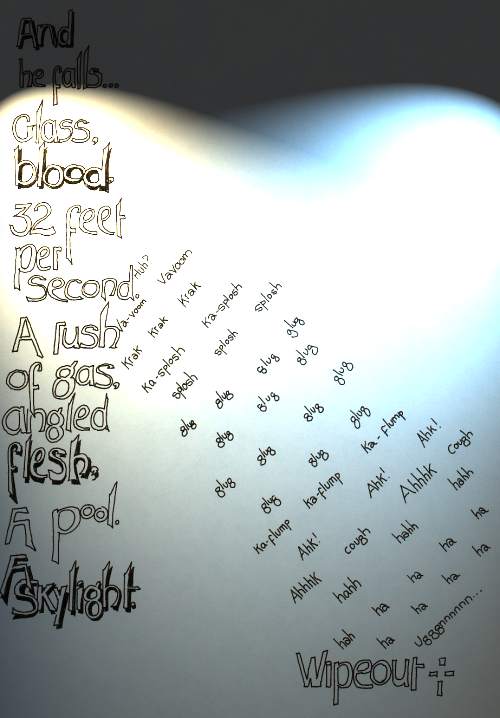 And
he falls...
Glass,
blood.
32 feet
per
second.
A rush
of gas,
angled
flesh.
A pool.
A
Skylight.
Huh?
Va-voom Vavoom
Krak Krak Krak
Ka-splosh Ka-splosh
splosh splosh splosh
glug glug glug glug
glug glug glug
glug glug glug glug
glug glug glug
Ka-flump Ka-flump Ka-flump
Ahk! Ahk! Ahk!
Ahhhk cough Ahhhk cough
hahh hahh hahh
hah ha ha ha ha
ha ha ha ha
Ugggnnnnn...
Wipeout